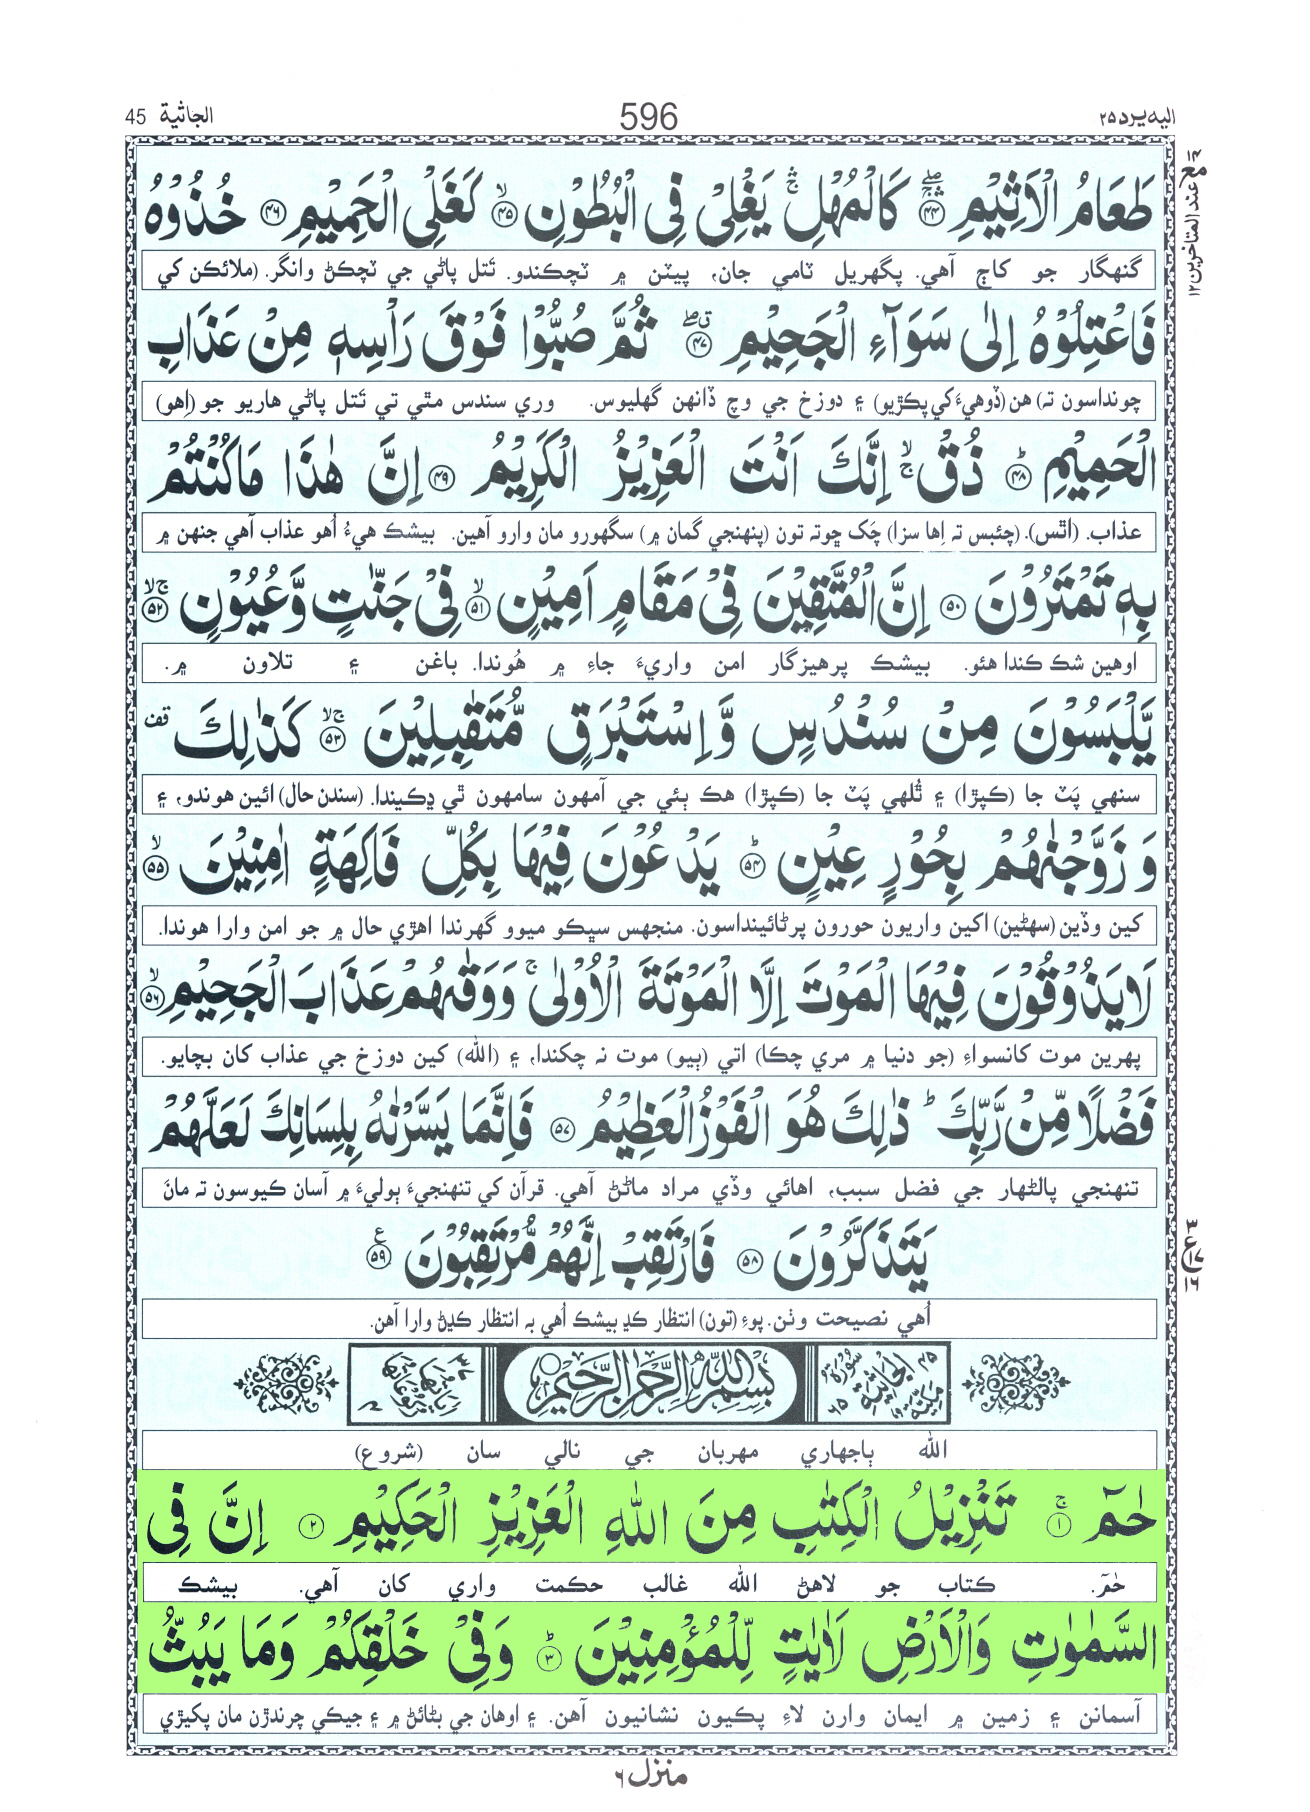 اليه يرد ٢٥
596
الجاثية 45
طَعَامُ الْاَثِيْمِ ﴿۴۴﴾ كَالْمُهْلِ ۚ يَغْلِىْ فِى الْبُطُوْنِ ﴿۴۵﴾ كَغَلْىِ الْحَمِيْمِ ﴿۴۶﴾ خُذُوْهُ
گنهگار جو کاڄ آهي. پگهريل ٽامي جان، پيٽن ۾ ٽچڪندو. تَتل پاڻي جي ٽچڪڻ وانگر. (ملائڪن کي
فَاعْتِلُوْهُ اِلٰى سَوَآءِ الْجَحِيْمِ ﴿۴۷﴾ ثُمَّ صُبُّوْا فَوْقَ رَاْسِهٖ مِنْ عَذَابِ
چونداسون تہ) هن (ڏوهيءَ کي پڪڙيو) ۽ دوزخ جي وچ ڏانهن گهليوس. وري سندس مٿي تي تَتل پاڻي هاريو جو (اِهو)
الْحَمِيْمِ ﴿۴۸﴾ ذُقْ ۙۚ اِنَّكَ اَنْتَ الْعَزِيْزُ الْكَرِيْمُ ﴿۴۹﴾ اِنَّ هٰذَا مَا كُنْتُمْ
عذاب. (اٿس). (چئبس تہ اِها سزا) چَک ڇوتہ تون (پنهنجي گمان ۾) سگهورو مان وارو آهين. بيشڪ هيءُ اُهو عذاب آهي جنهن ۾
بِهٖ تَمْتَرُوْنَ ﴿۵۰﴾ اِنَّ الْمُتَّقِيْنَ فِىْ مَقَامٍ اَمِيْنٍ ﴿۵۱﴾ فِىْ جَنّٰتٍ وَّعُيُوْنٍ ﴿۵۲﴾
اوهين شڪ ڪندا هئو. بيشڪ پرهيزگار امن واريءَ جاءِ ۾ هُوندا. باغن ۽ تلاون ۾.
يَّلْبَسُوْنَ مِنْ سُنْدُسٍ وَّاِسْتَبْرَقٍ مُّتَقٰبِلِيْنَ ﴿۵۳﴾ كَذٰلِكَ قف
سنهي پَٽ جا (ڪپڙا) ۽ ٿُلهي پَٽ جا (ڪپڙا) هڪ ٻئي جي آمهون سامهون ٿي ڍڪيندا. (سندن حال) ائين هوندو، ۽
وَ زَوَّجْنٰهُمْ بِحُوْرٍ عِيْنٍ ﴿۵۴﴾ يَدْعُوْنَ فِيْهَا بِكُلِّ فَاكِهَةٍ اٰمِنِيْنَ ﴿۵۵﴾
کين وڏين (سهڻين) اکين واريون حورون پرڻائينداسون. منجهس سڀڪو ميوو گهرندا اهڙي حال ۾ جو امن وارا هوندا.
لَا يَذُوْقُوْنَ فِيْهَا الْمَوْتَ اِلَّا الْمَوْتَةَ الْاُوْلٰى ۚ وَوَقٰىهُمْ عَذَابَ الْجَحِيْمِ ﴿۵۶﴾
پهرين موت کانسواءِ (جو دنيا ۾ مري چڪا) اتي (ٻيو) موت نہ چکندا، ۽ (الله) کين دوزخ جي عذاب کان بچايو.
فَضْلًا مِّنْ رَّبِّكَ ؕ ذٰلِكَ هُوَ الْفَوْزُ الْعَظِيْمُ ﴿۵۷﴾ فَاِنَّمَا يَسَّرْنٰهُ بِلِسَانِكَ لَعَلَّهُمْ
تنهنجي پالڻهار جي فضل سبب، اهائي وڏي مراد ماڻڻ آهي. قرآن کي تنهنجيءَ ٻوليءَ ۾ آسان ڪيوسون تہ مانَ
يَتَذَكَّرُوْنَ ﴿۵۸﴾ فَارْتَقِبْ اِنَّهُمْ مُّرْتَقِبُوْنَ ﴿۵۹﴾
اُهي نصيحت وٺن. پوءِ (تون) انتظار ڪر بيشڪ اُهي بہ انتظار ڪرڻ وارا آهن.
۴۵ سُوْرَةُ الْجَاثِيَةِ مَكِّيَّةٌ ۶۵
بِسْمِ اللّٰهِ الرَّحْمٰنِ الرَّحِيْمِ
اٰيَاتُهَا ٣٧ رُكُوْعَاتُهَا ٤
الله ٻاجهاري مهربان جي نالي سان (شروع)
حٰمٓ ﴿۱﴾ تَنْزِيْلُ الْكِتٰبِ مِنَ اللّٰهِ الْعَزِيْزِ الْحَكِيْمِ ﴿۲﴾ اِنَّ فِى
حٰمٓ. ڪتاب جو لاهڻ الله غالب حڪمت واري کان آهي. بيشڪ
السَّمٰوٰتِ وَالْاَرْضِ لَاٰيٰتٍ لِّلْمُؤْمِنِيْنَ ﴿۳﴾ وَفِىْ خَلْقِكُمْ وَمَا يَبُثُّ
آسمانن ۽ زمين ۾ ايمان وارن لاءِ پڪيون نشانيون آهن. ۽ اوهان جي بڻائڻ ۾ ۽ جيڪي چرندڙن مان پکيڙي
منزل ۶